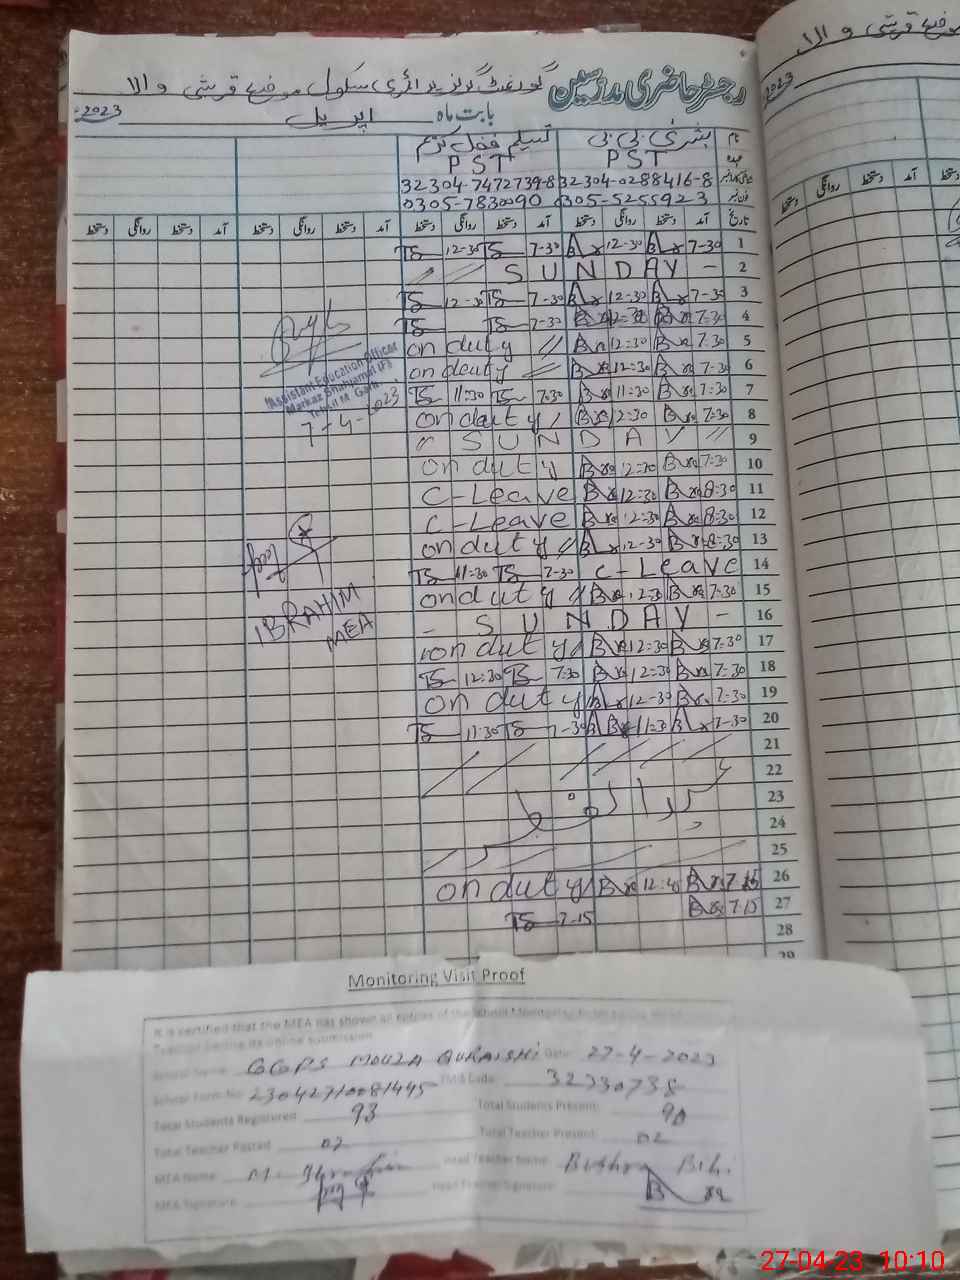 رجسٹر حاضری مدرسین
گورنمنٹ گرلز پرائمری سکول موضع قریشی والا
بابت ماہ اپریل 2023
نام بشریٰ بی بی تسلیم فضل کریم
عہدہ PST PST
32304-0288416-8 32304-7472739-8
فون نمبر 0305-5255923 0305-7830090
تاریخ آمد دستخط روانگی دستخط آمد دستخط روانگی دستخط آمد دستخط روانگی دستخط آمد دستخط روانگی دستخط
1 7-30 Bx 12-30 Bx 7-30 TS 12-30 TS
2 - SUNDAY
3 7-30 Bx 12-30 Bx 7-30 TS 12-30 TS
4 7-30 Bx 12-30 Bx 7-30 TS TS
5 7-30 Bx 12-30 Bx on duty //
6 7-30 Bx 12-30 Bx on deuty //
7 7-30 Bx 11-30 Bx 7-30 TS 11-30 TS
8 7-30 Bx 12-30 Bx on duty
9 // SUNDAY //
10 7-30 Bx 12-30 Bx on duty
11 8-30 Bx 12-30 Bx C-Leave
12 8-30 Bx 12-30 Bx C-Leave
13 8-30 Bx 12-30 Bx on duty //
14 C-Leave 7-30 TS 11-30 TS
15 7-30 Bx 12-30 Bx on duty //
16 - SUNDAY -
17 7-30 Bx 12-30 Bx on duty
18 7-30 Bx 12-30 Bx 7-30 TS 12-30 TS
19 7-30 Bx 12-30 Bx on duty
20 7-30 Bx 11-30 Bx 7-30 TS 11-30 TS
21
22
23 عید الفطر
24
25
26 7-15 Bx 12-45 Bx on duty
27 7-15 Bx 7-15 TS
28
29
Assistant Education Officer
Markaz Shahjamal (F)
Tehsil M. Garh
7-4-2023
IBRAHIM
MEA
Monitoring Visit Proof
It is certified that the MEA has shown all entries of the School Monitoring
before its online submission
School Name: GGPS MOUZA QURAISHI Date: 27-4-2023
School Form No: 23042710081495 EMIS Code: 32330738
Total Students Registered: 93 Total Students Present: 90
Total Teacher Posted: 02 Total Teacher Present: 02
MEA Name: Head Teacher Name: Bushra Bibi
MEA Signature: Head Teacher Signature:
27-04-23 10:10
قریشی والا
2023
دستخط روانگی دستخط آمد